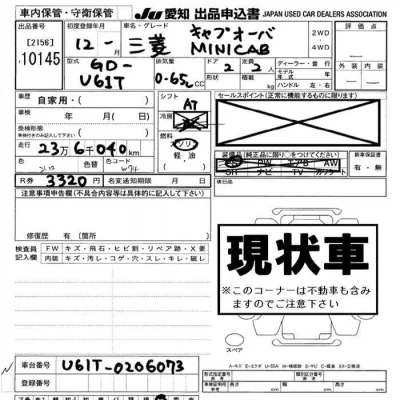 車内保管・守衛保管 JU 愛知 出品申込書 JAPAN USED CAR DEALERS ASSOCIATION
出品番号 初度登録年月 車名・グレード
[2156] 12年 一月 三菱 キャブオーバ MINICAB
10145
2WD・4WD
外装 内装
型式 GD-U61T
排気量 0.65L CC
ドア 2 定員 2人
ディーラー・並行
モデル年式
ハンドル 左・右
車歴 自家用・( )
シフト AT
冷房
セールスポイント(正常に機能するものに限ります)
車検 年 月 日( )
受検形態
燃料 ガソリン 軽油 ( )
走行 23万6千040km
色 色替 色コード W74
PS (純正品に限り○をつけてください)
エアB AW
SR ナビ TV カワシート
新車保証書 有・無
R券 3320円
名変期限 月 日( )
後日品
注意事項申告欄(不具合内容等は具体的に記入して下さい)
修復歴 有( )箇所
検査員記入欄
FW キズ・飛石・ヒビ割・リペア跡・X要
内装 キズ・汚レ・コゲ・穴・スレ・キレ・破レ
現状車
※このコーナーは不動車も含みますのでご注意下さい
スペア
車台番号 U61T-0206073
登録番号